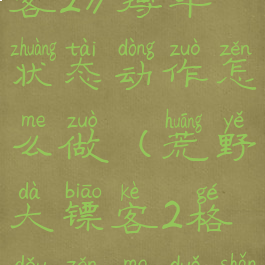 客2》每年
zhuàng tài dòng zuò zěn
状态动作怎
me zuò huāng yě
么做（荒野
dà biāo kè gé
大镖客2格